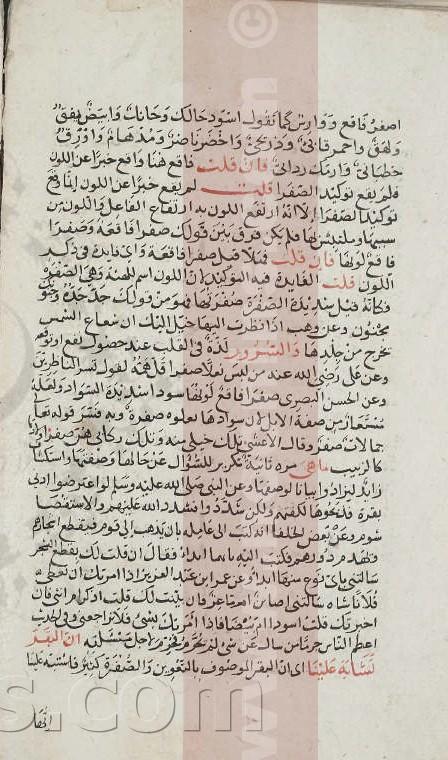 اصفر فاقع ووارس كما تقول اسود حالك وحانك وابيض يقق
ولهق واحمر قانئ وذريحي واخضر ناضر ومدهام واورق
خطباني وارمك رداني فان قلت فاقع هنا واقع خبرا عن اللون
فلم يقع توكيدا لصفرا قلت لم يقع خبرا عن اللون انما وقع
توكيدا لصفرا الا انه ارتفع اللون به ارتفاع الفاعل واللون من
سببها وملتبس بها فلم يكن فرق بين قولك صفرا فاقعة وصفرا
فاقع لونها فان قلت فهلا قيل صفرا فاقعة واي فايدة في ذكر
اللون قلت الفايدة فيه التوكيد لان اللون اسم للهيئة وهي الصفرة
فكانه قيل شديدة الصفرة صفرتها فهو من قولك جد جده وجنونك
مجنون وعن وهب اذا نظرت اليها خيل اليك ان شعاع الشمس
يخرج من جلدها والسرور لذة في القلب عند حصول نفع او توقعه
وعن علي رضي الله عنه من لبس نعلا صفرا قل همه لقوله تسر الناظرين
وعن الحسن البصري صفرا فاقع لونها سودا شديدة السواد ولعله
مستعار من صفة الابل لان سوادها يعلوه صفرة وبه فسر قوله تعالى
جمالات صفر وقال الاعشى تلك خيلي منه وتلك ركابي هن صفر اولادها
كالزبيب ما هي مرة ثانية تكرير للسؤال عن حالها وصفتها واستكشاف
زايد ليزدادوا بيانا لوصفها وعن النبي صلى الله عليه وسلم لو اعترضوا ادنى
بقرة فذبحوها لكفتهم ولكن شددوا فشدد الله عليهم والاستقصا
شوم وعن بعض الخلفا انه كتب الى عامله بان يذهب الى قوم فيقطع اشجارهم
ويهدم دورهم فكتب اليه بايهما ابدا فقال ان قلت لك بقطع الشجر
سالتني باي نوع منها ابدا وعن عمر بن عبد العزيز اذا امرتك ان تعطي
فلانا شاة سالتني اضاين ام ماعز فان بينت لك قلت اذكر ام انثى فان
اخبرتك قلت اسودا ام بيضا فاذا امرتك بشي فلا تراجعني وفي الحديث
اعظم الناس جرما من سال عن شي لم يحرم فحرم لاجل مسئلته ان البقر
تشابه علينا اى ان البقر الموصوف بالتعوين والصفرة كثير فاشتبه علينا
ايها